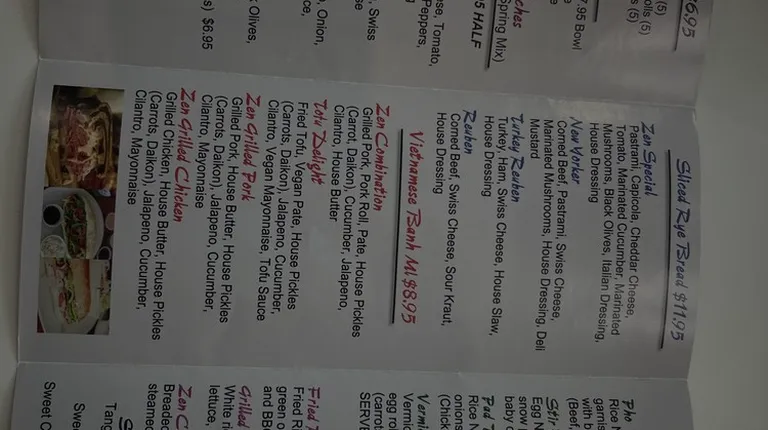 $6.95
(5)
olls (5)
s (5)
7.95 Bowl
ches
pring Mix)
5 HALF
ese, Tomato,
Peppers,
s, Swiss
, Onion,
ce,
k Olives,
s) $6.95
Sliced Rye Bread $11.95
Zen Special
Pastrami, Capicola, Cheddar Cheese,
Tomato, Marinated Cucumber, Marinated
Mushrooms, Black Olives, Italian Dressing,
House Dressing
New Yorker
Corned Beef, Pastrami, Swiss Cheese,
Marinated Mushrooms, House Dressing, Deli
Mustard
Turkey Reuben
Turkey, Ham, Swiss Cheese, House Slaw,
House Dressing
Reuben
Corned Beef, Swiss Cheese, Sour Kraut,
House Dressing
Vietnamese Banh Mi $8.95
Zen Combination
Grilled Pork, Pork Roll, Pate, House Pickles
(Carrot, Daikon), Cucumber, Jalapeno,
Cilantro, House Butter
Tofu Delight
Fried Tofu, Vegan Pate, House Pickles
(Carrots, Daikon), Jalapeno, Cucumber,
Cilantro, Vegan Mayonnaise, Tofu Sauce
Zen Grilled Pork
Grilled Pork, House Butter, House Pickles
(Carrots, Daikon), Jalapeno, Cucumber,
Cilantro, Mayonnaise
Zen Grilled Chicken
Grilled Chicken, House Butter, House Pickles
(Carrots, Daikon), Jalapeno, Cucumber,
Cilantro, Mayonnaise
Pho
Rice N
garnis
with b
(Beef,
Stir
Egg N
snow
baby c
Pad T
Rice N
onions
(Chick
Vermi
Vermic
egg rol
(carrot
SERV
Fried
Fried Ri
green o
and BB
Grilled
White ri
lettuce,
Zen C
Breaded
steamed
Tang
Swee
Sweet C